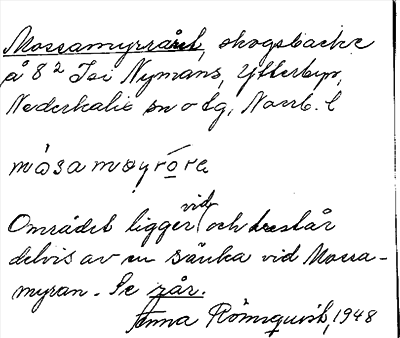 Mossamyrråret, skogsbacke
å 8² Isi Nymans, Ytterbyn,
Nederkalix sn o tg, Norrb. l
måsamøyrǫ́re
Området ligger vid och består
delvis av en sänka vid Mossa-
myran. Se rår.
Anna Römsquist, 1948